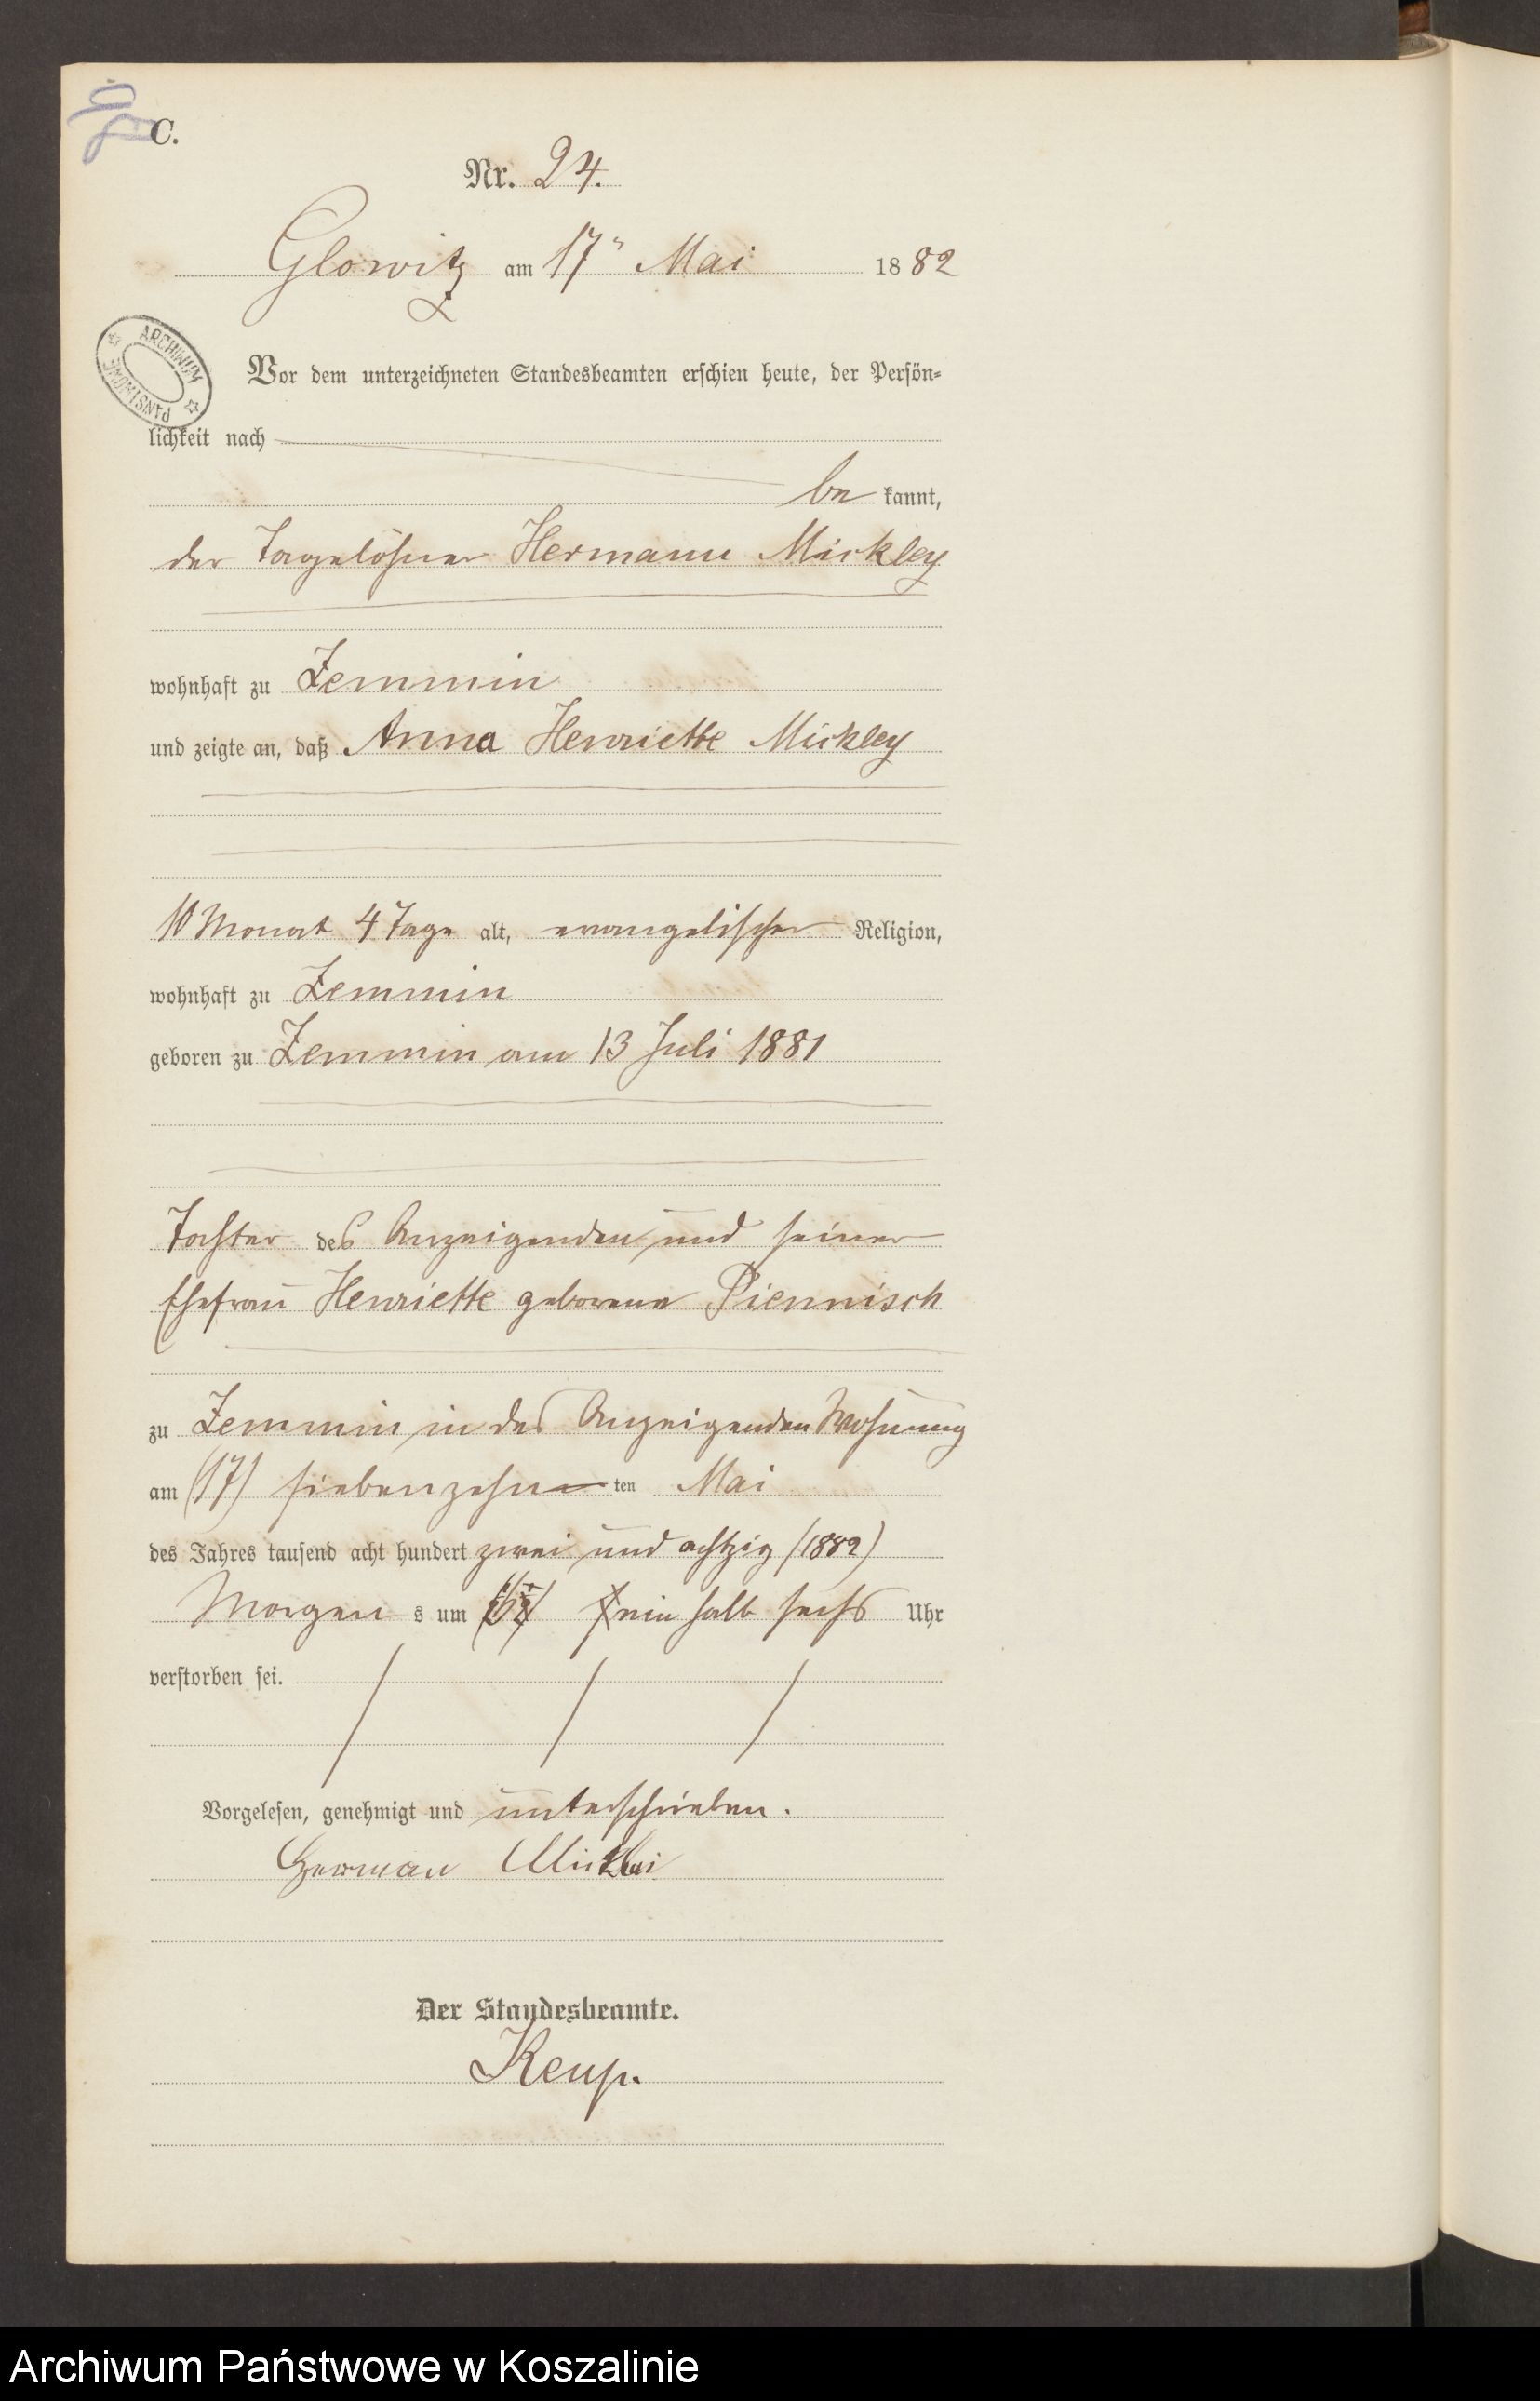 C.
Nr. 24.
Glowitz am 17" Mai 1882
ARCHIWUM PAŃSTWOWE
Vor dem unterzeichneten Standesbeamten erschien heute, der Persön-
lichkeit nach
be kannt,
der Tagelöhner Hermann Mickley
wohnhaft zu Zemmin
und zeigte an, daß Anna Henriette Mickley
10 Monat 4 Tage alt, evangelischer Religion,
wohnhaft zu Zemmin
geboren zu Zemmin am 13 Juli 1881
Tochter des Anzeigenden und seiner
Ehefrau Henriette geborene Piennisch
zu Zemmin in des Anzeigenden Wohnung
am (17) siebenzehn ten Mai
des Jahres tausend acht hundert zwei und achtzig (1882)
Morgen s um ein halb sechs Uhr
verstorben sei.
Vorgelesen, genehmigt und unterschrieben.
Herman
Der Standesbeamte.
Keup.
Archiwum Państwowe w Koszalinie